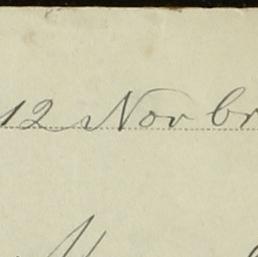 12 Novbr